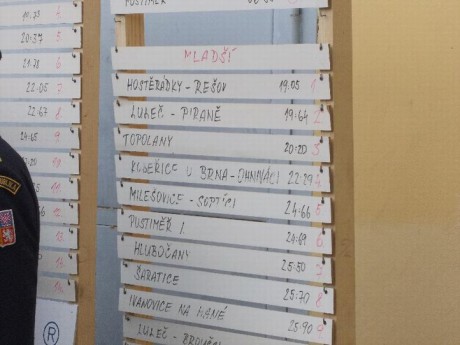 19.73
20:37 5
21.78 6
22:05 7
22:67 8
24:65 9
10
PUSTIMĚŘ
MLADŠÍ
HOSTĚRÁDKY - REŠOV 19:05 1
LULEČ - PIRANĚ 19:64 2
TOPOLANY 20:20 3
U BRNA - OHNIVÁCI 22:29 4
MILEŠOVICE - SOPTÍCI 24:66 5
PUSTIMĚŘ 1. 24:69 6
HLUBOČANY 25:50 7
ŠARATICE 25:70 8
IVANOVICE NA HANÉ 25:90 9
LULEČ -
®